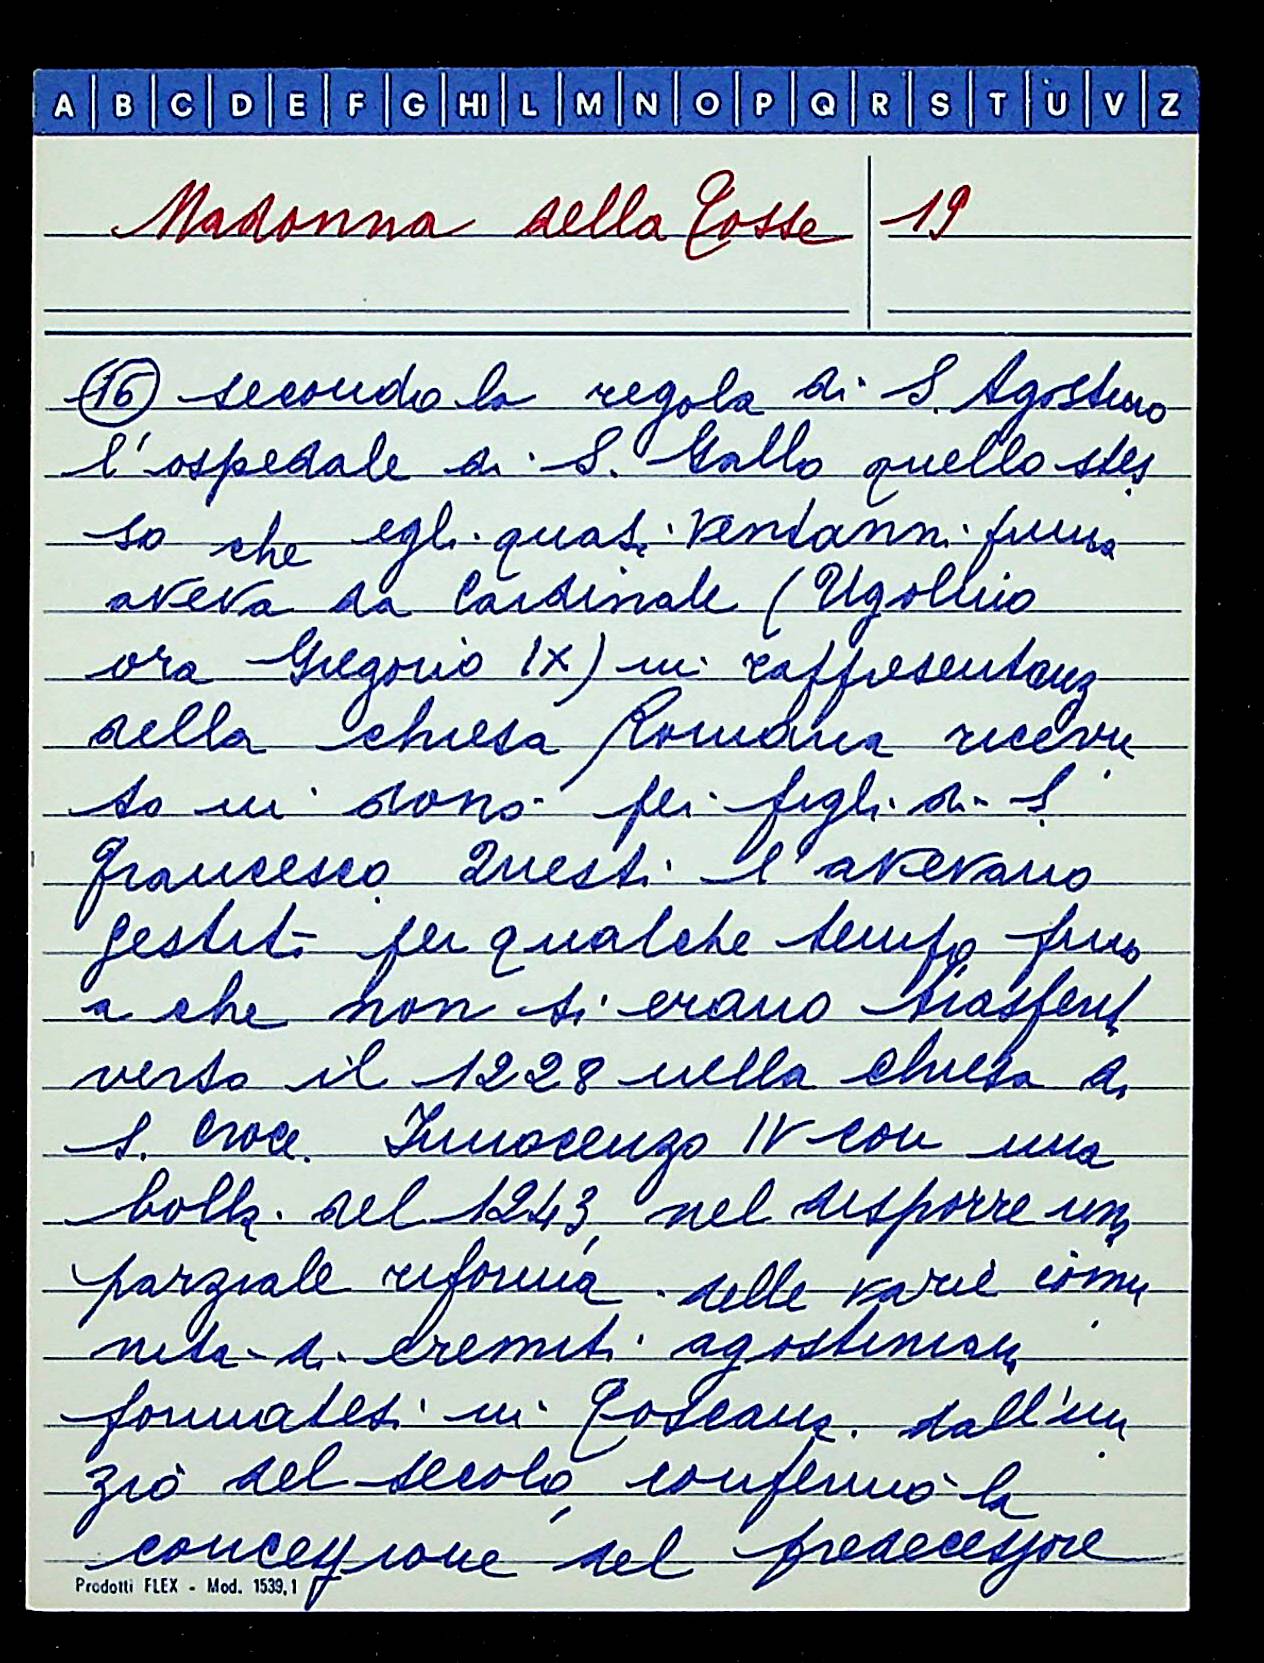 A B C D E F G HI L M N O P Q R S T U V Z
Madonna della Tosse 19
(16) secondo la regola di S. Agostino
l'ospedale di S. Gallo quello stes
so che egli quasi vent'anni prima
aveva da Cardinale (Ugolino
ora Gregorio IX) in rappresentanz
della chiesa Romana ricevu
to in dono pei figli di S.
Francesco. Questi l'avevano
gestito per qualche tempo fino
a che non si erano trasferiti
verso il 1228 nella chiesa di
S. Croce. Innocenzo IV con una
bolla del 1243, nel disporre una
parziale riforma delle varie comu
nità di eremiti agostiniani
formatesi in Toscana dall'ini
zio del secolo, confermò la
concessione del predecessore
Prodotti FLEX - Mod. 1539,1